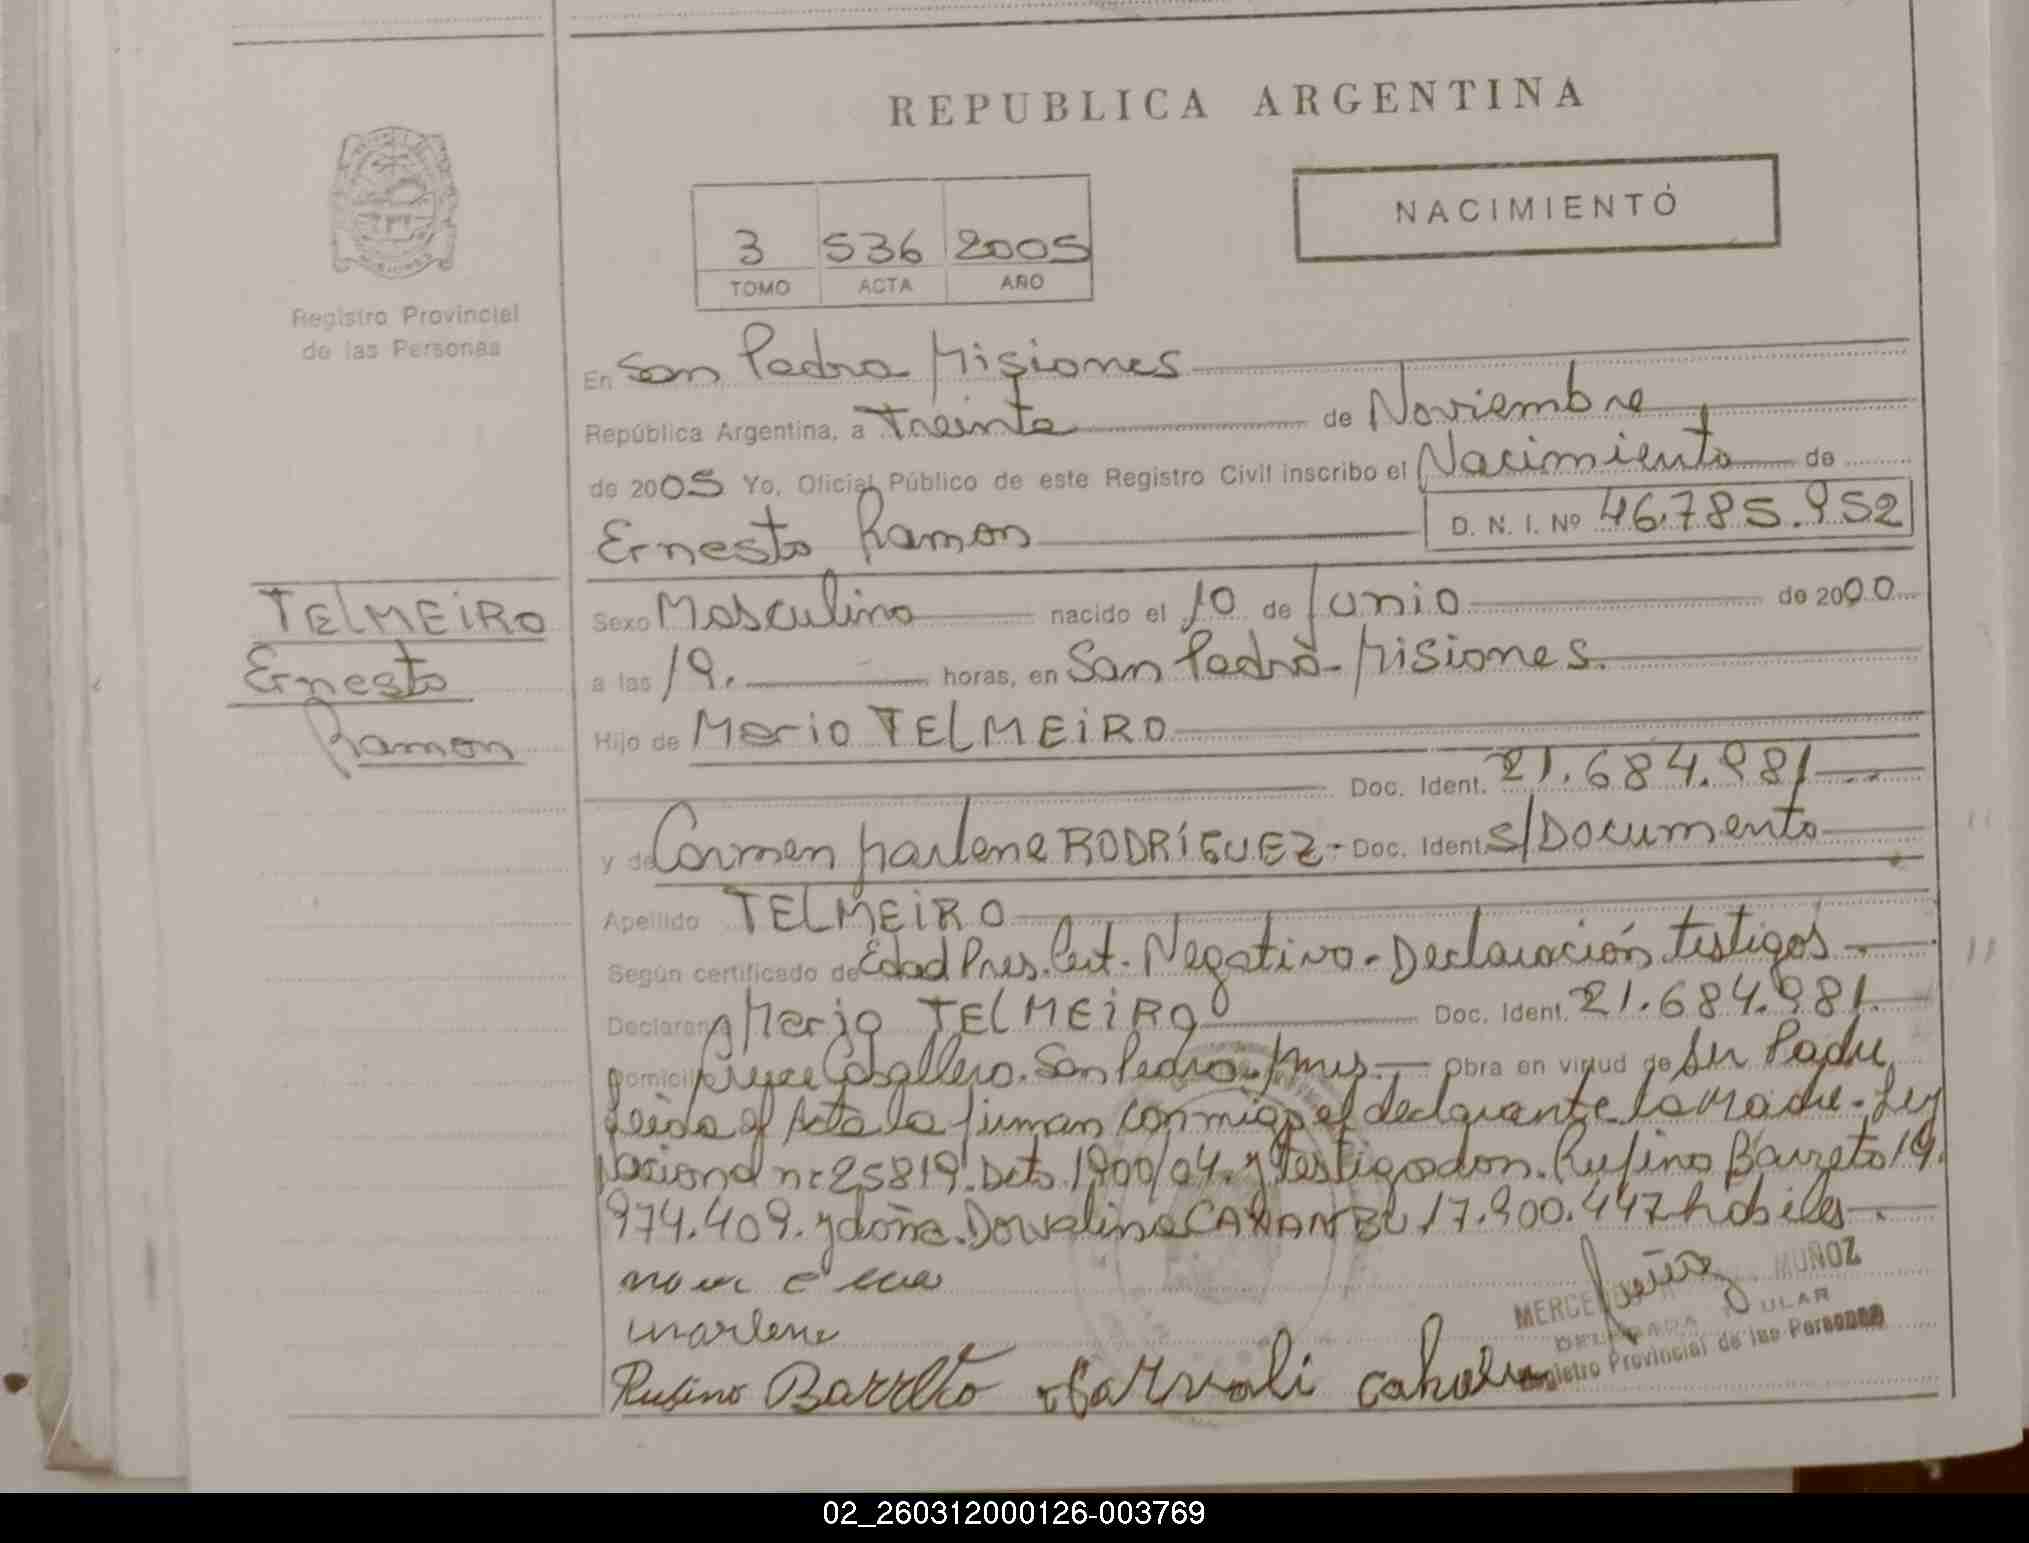 REPUBLICA ARGENTINA
NACIMIENTO
3 536 2005
TOMO ACTA AÑO
MISIONES
Registro Provincial
de las Personas
En San Pedro Misiones
República Argentina, a Treinta de Noviembre
de 2005 Yo, Oficial Público de este Registro Civil inscribo el Nacimiento de
Ernesto Ramon D. N. I. Nº 46.785.952
TELMEIRO
Ernesto
Ramon
Sexo Masculino nacido el 10 de Junio de 2000
a las 19. horas, en San Pedro - Misiones.
Hijo de Mario TELMEIRO
Doc. Ident. 21.684.981
y de Carmen Marlene RODRÍGUEZ - Doc. Ident. S/Documento
Apellido TELMEIRO
Según certificado de Edad Pres. Cert. Negativo - Declaración testigos -
Declaran Mario TELMEIRO Doc. Ident. 21.684.981.
Domicilio Cruce Caballero. San Pedro. Mnes. Obra en virtud de Su Padre
leida el Acta la firman conmigo el declarante la Madre - Ley
Nacional nº 25819. Dcto. 1900/04. y testigos don. Rufino Barreto 19.
974.409. y doña. Dorvalina 17.900.447 habiles -
marlene
Rufino Barreto
MUÑOZ
Registro Provincial de las Personas
02_260312000126-003769